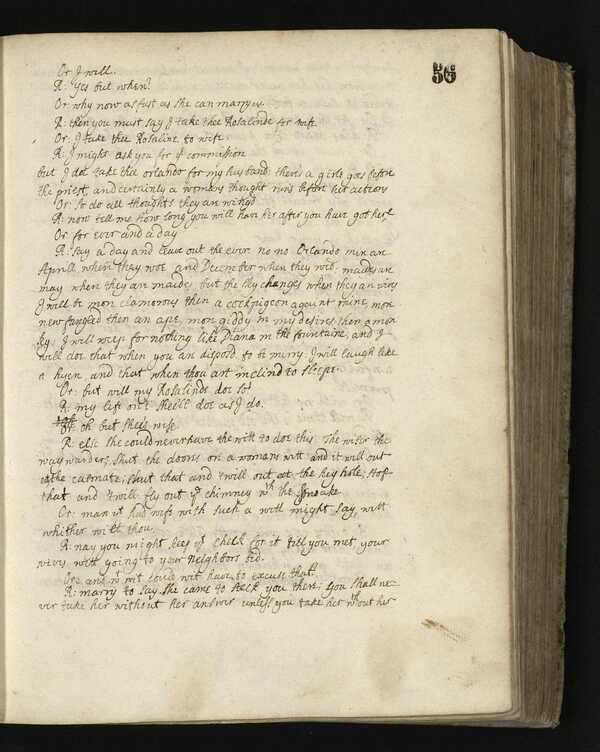 56
Or I will.
R: yes but when?
Or why now as fast as she can marry us.
R: then you must say I take thee Rosalinde for wife
Or: I take thee Rosaline to wife
R: I might ask you for yr commission
but I doe take thee orlando for my husband: theres a girle goes before
the priest, and certainly a womans thought runs before her actions
Or: so do all thoughts they are wingd
R: now tell me how long you will have her after you have got her
Or for ever and a day
R: say a day and leave out the ever. no no Orlando men are
Aprill when they woe and December when they wed: maides are
may when they are maides but the sky changes when they are wives
I will be more clamerous then a cockpigeon against raine, more
new fangled then an ape, more giddy in my desires then a mon
key. I will weep for nothing like Diana in the fountaine, and I
will doe that when you are disposd to be merry. I will laugh like
a hyen, and that when thou art inclind to sleepe.
Or: but will my Rosalinde doe so
R: my life on't shee'll doe as I do.
Or oh but shee's wise
R: else she could never have the witt to doe this. The wiser the
waywarder; shut the doores on a womans witt and it will out
at the casmate; shut that and t'will out at the key hole, stop
that and t'will fly out yr chimney wth the smoake
Or: man yt had wife with such a witt might say, witt
whither wilt thou.
R: nay you might keep yt check for it till you met your
wives witt going to your neighbors bed.
Or: and wt wit could wit have to excuse that?
R: marry to say she came to seek you there: you shall ne-
ver take her without her answer unless you take her without her